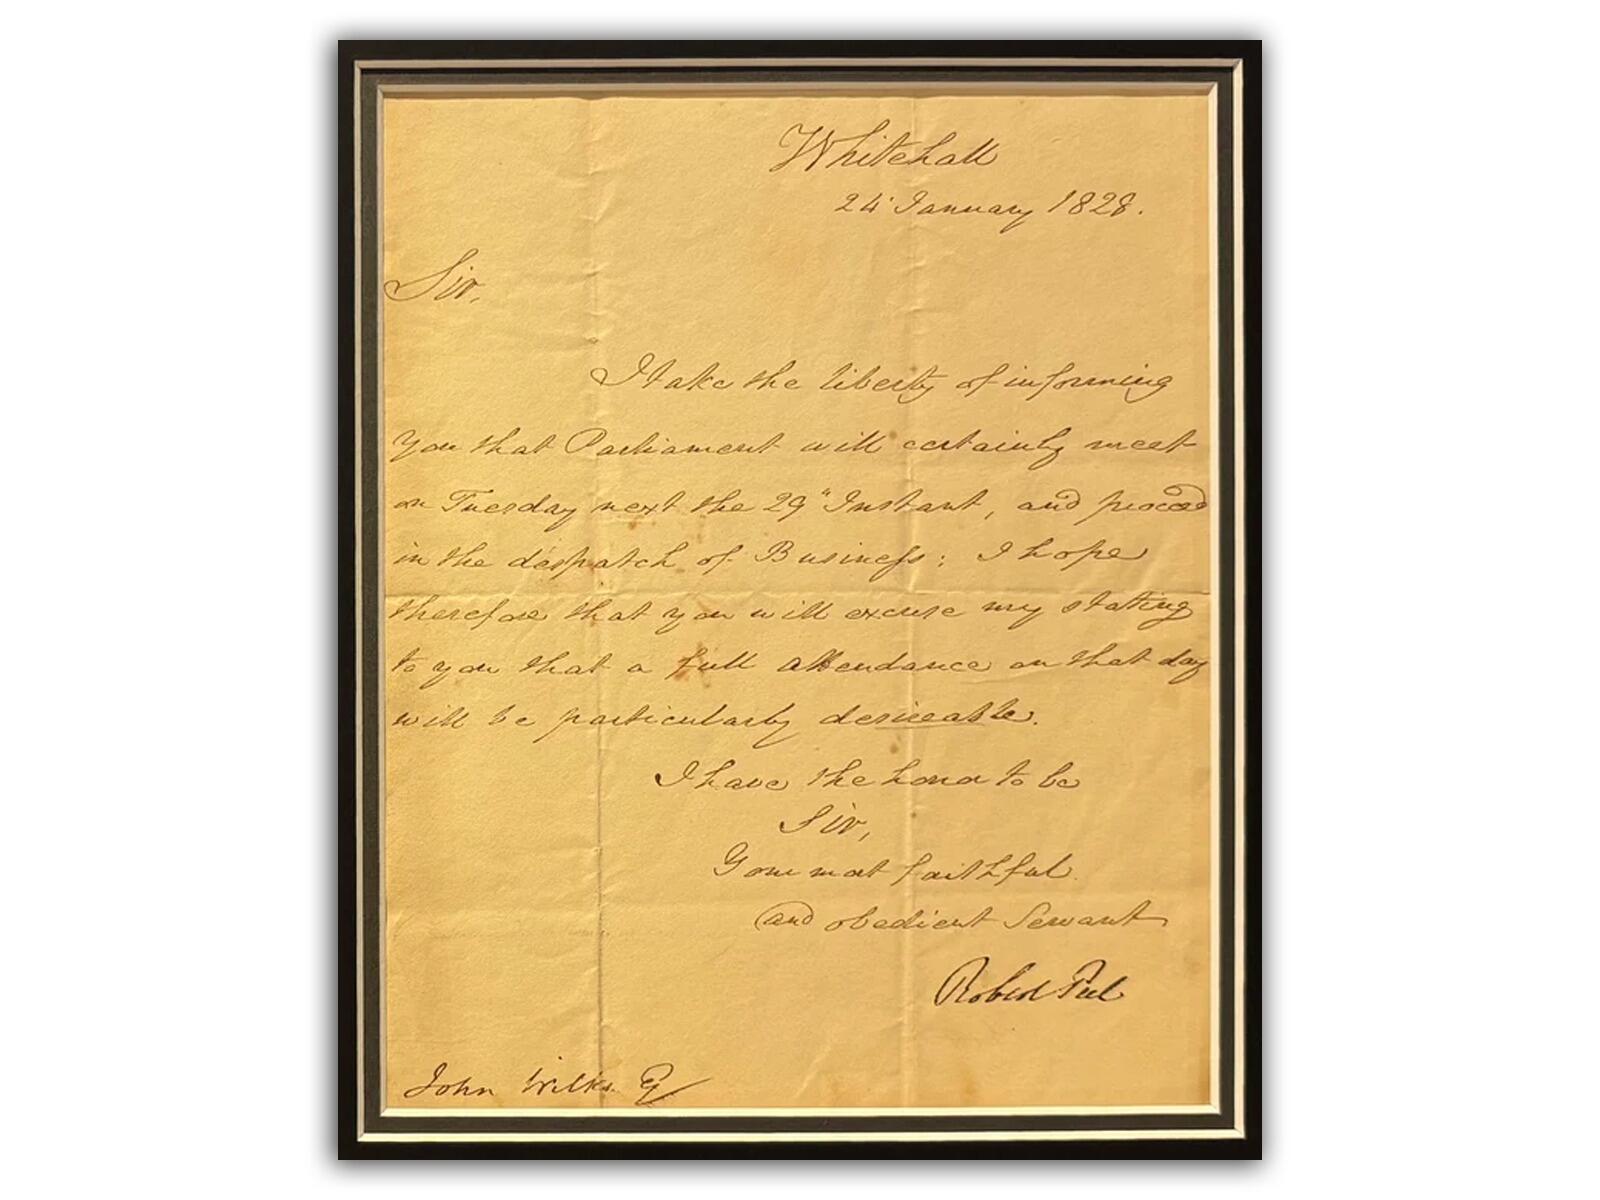 Whitehall
24 January 1828.
Sir,
I take the liberty of informing
You that Parliament will certainly meet
on Tuesday next the 29" Instant, and proceed
in the despatch of Business; I hope
therefore that you will excuse my stating
to you that a full attendance on that day
will be particularly desireable.
I have the honor to be
Sir,
Your most faithful
and obedient Servant
Robert Peel
John Wilks Esq